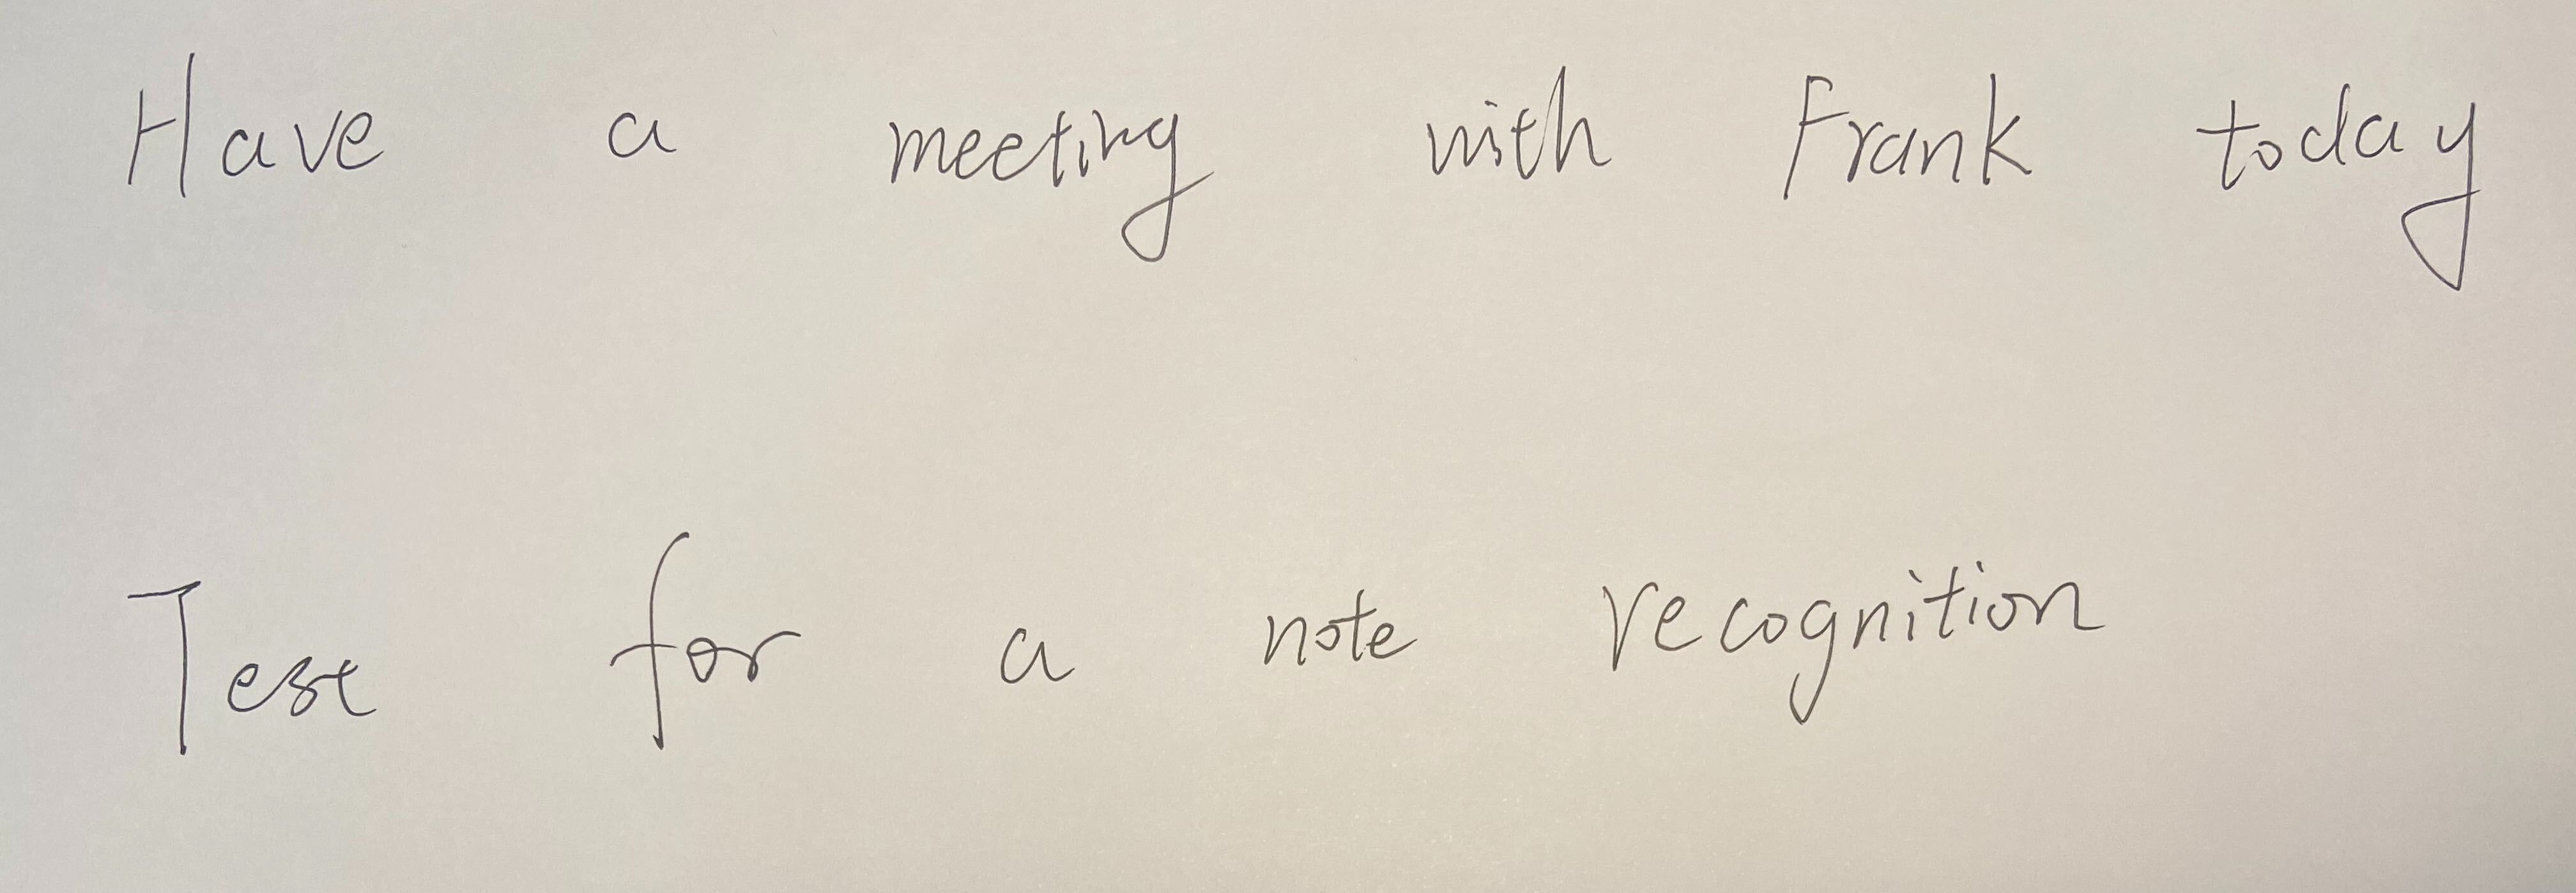 Have a meeting with Frank today
Test for a note recognition